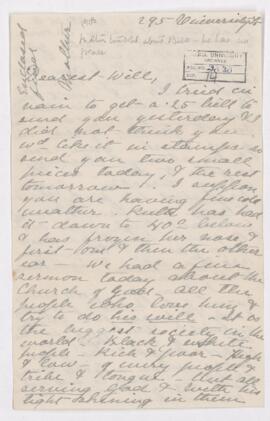 295 University St
Dearest Will,
I tried in
vain to get a .25 bill to
send you yesterday & I
did not think you
wd like it in stamps so
send you two small
pieces today, & the rest
tomorrow. I suppose
you are having fine cold
weather. Ruth has had
it down to 40° below
& has frozen her nose &
first one & then the other
ear - We had a fine
sermon today about the
Church of God - all the
people who love him &
try to do his will - It is
the biggest society in the
world. Black & white
people - Rich & poor - High
& low - of every people &
tribe & tongue - but all
serving God & with his
light shining in them